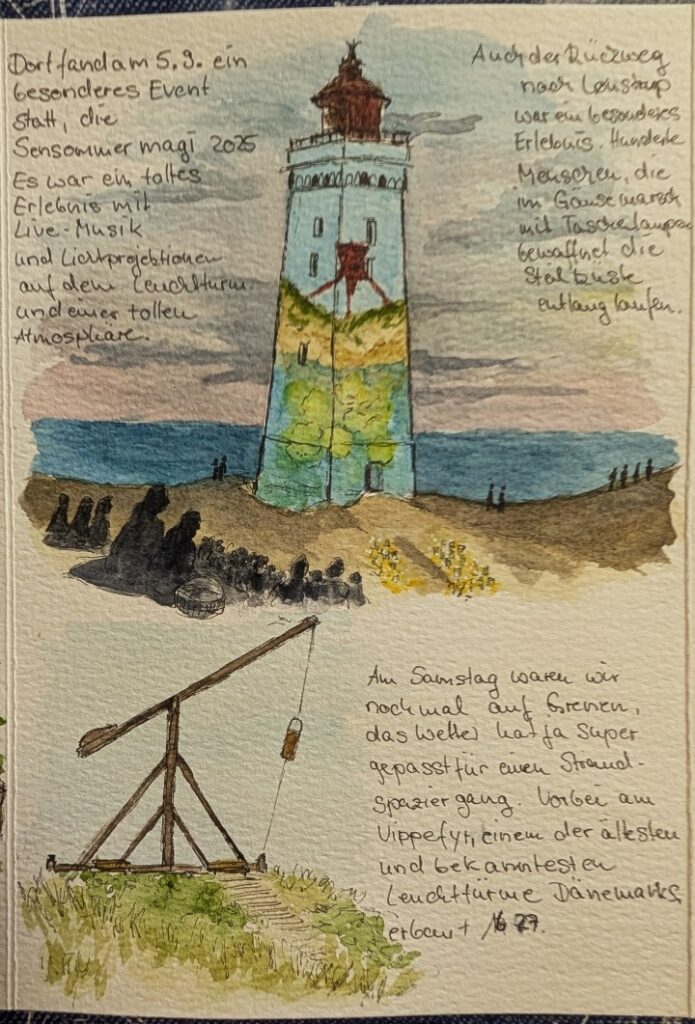 Dort fand am 5.9. ein
besonderes Event
statt, die
Sensommer magi 2025
Es war ein tolles
Erlebnis mit
Live-Musik
und Lichtprojektionen
auf dem Leuchtturm
und einer tollen
Atmosphäre.
Auch der Rückweg
nach Lønstrup
war ein besonderes
Erlebnis. Hunderte
Menschen, die
im Gänsemarsch
mit Taschenlampen
bewaffnet die
Steilküste
entlang laufen.
Am Samstag waren wir
nochmal auf Grenen,
das Wetter hat ja super
gepasst für einen Strand-
spaziergang. Vorbei am
Vippefyr, einem der ältesten
und bekanntesten
Leuchttürme Dänemarks,
erbaut